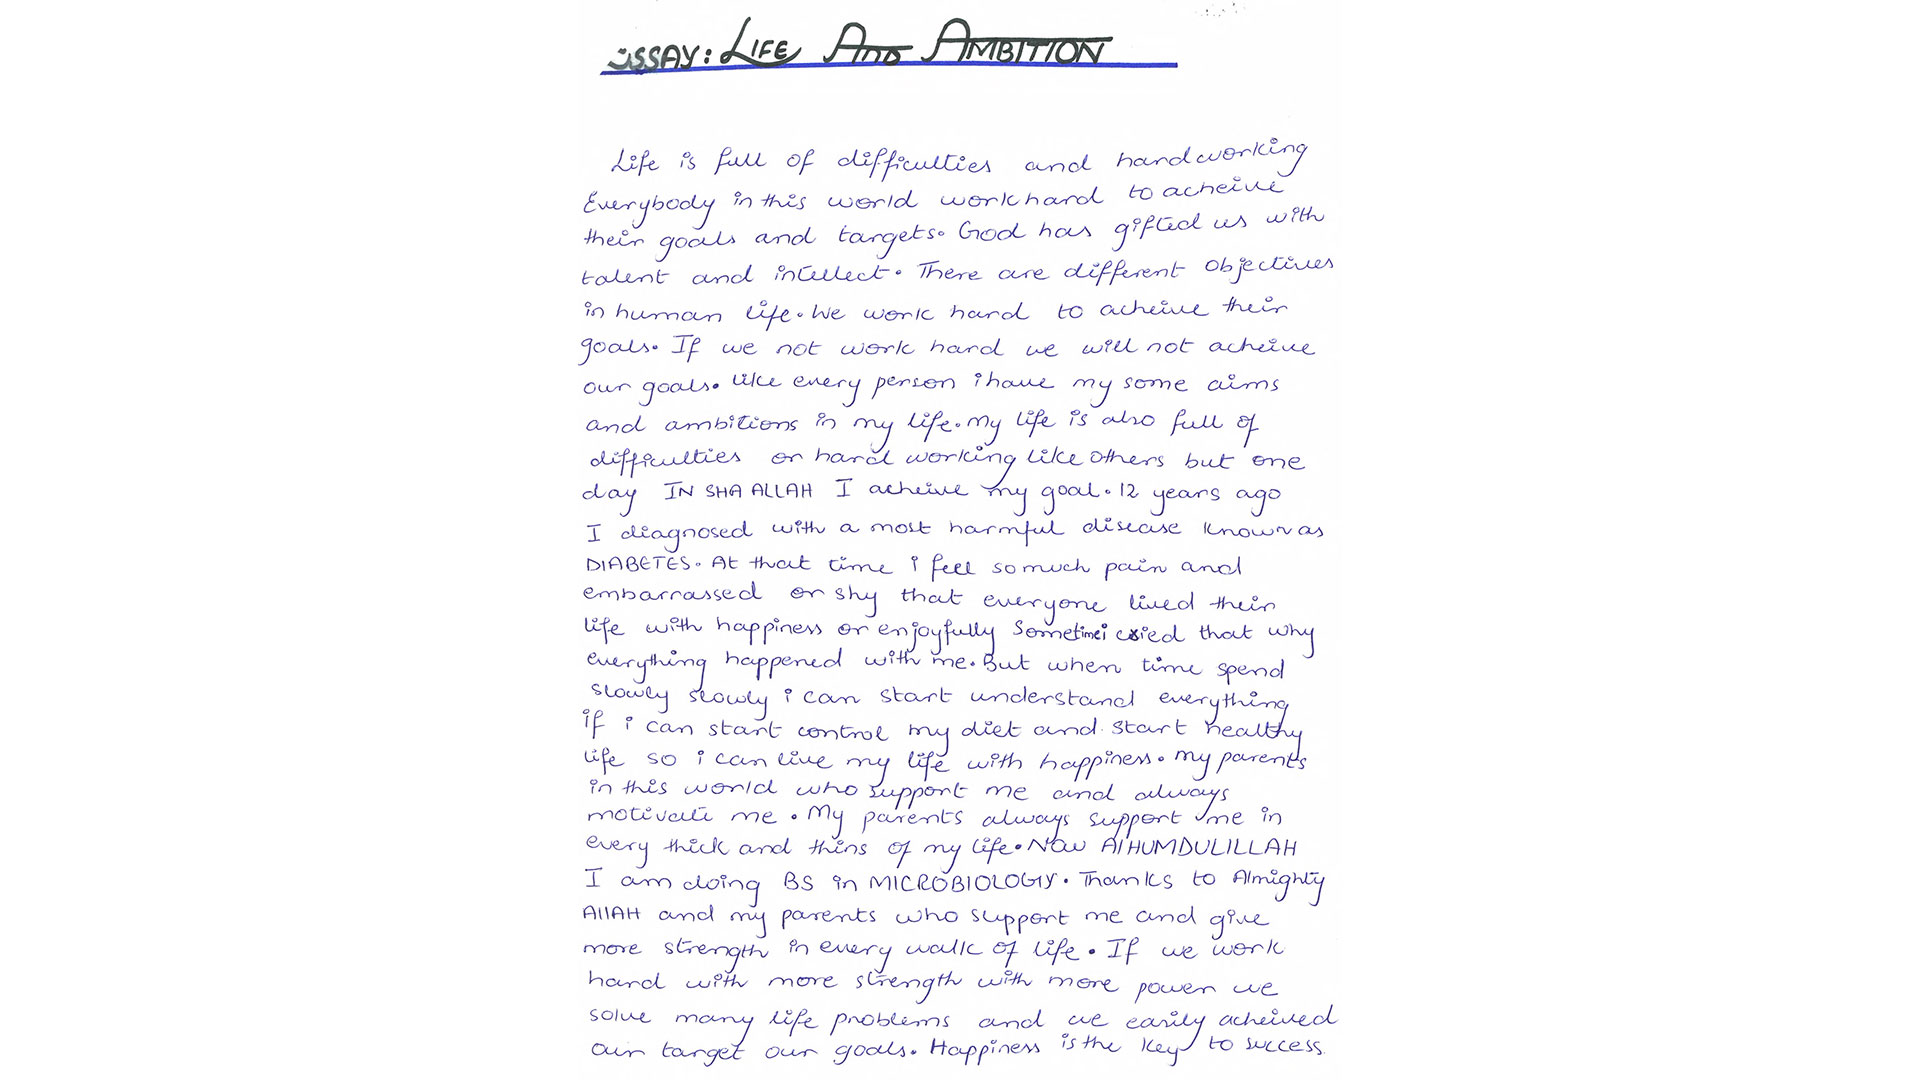 ESSAY: LIFE AND AMBITION
Life is full of difficulties and handworking
Everybody in this world workhard to acheive
their goals and targets. God has gifted us with
talent and intellect. There are different objectives
in human life. We work hard to acheive their
goals. If we not work hard we will not acheive
our goals. like every person i have my some aims
and ambitions in my life. my life is also full of
difficulties or hard working like others but one
day IN SHA ALLAH I acheive my goal. 12 years ago
I diagnosed with a most harmful disease known as
DIABETES. At that time i feel so much pain and
embarrassed or shy that everyone lived their
life with happiness or enjoyfully Sometimei cried that why
everything happened with me. But when time spend
slowly slowly i can start understand everything
if i can start control my diet and start healthy
life so i can live my life with happiness. my parents
in this world who support me and always
motivate me. My parents always support me in
every thick and thins of my life. Now AlHUMDULILLAH
I am doing BS in MICROBIOLOGY. Thanks to Almighty
AllAH and my parents who support me and give
more strength in every walk of life. If we work
hard with more strength with more power we
solve many life problems and we easily acheived
our target our goals. Happiness is the key to success.